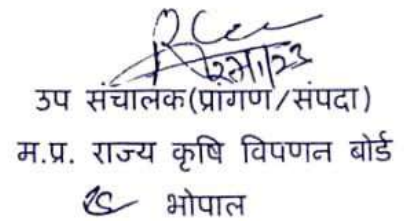 उप संचालक(प्रांगण/संपदा)
म.प्र. राज्य कृषि विपणन बोर्ड
भोपाल